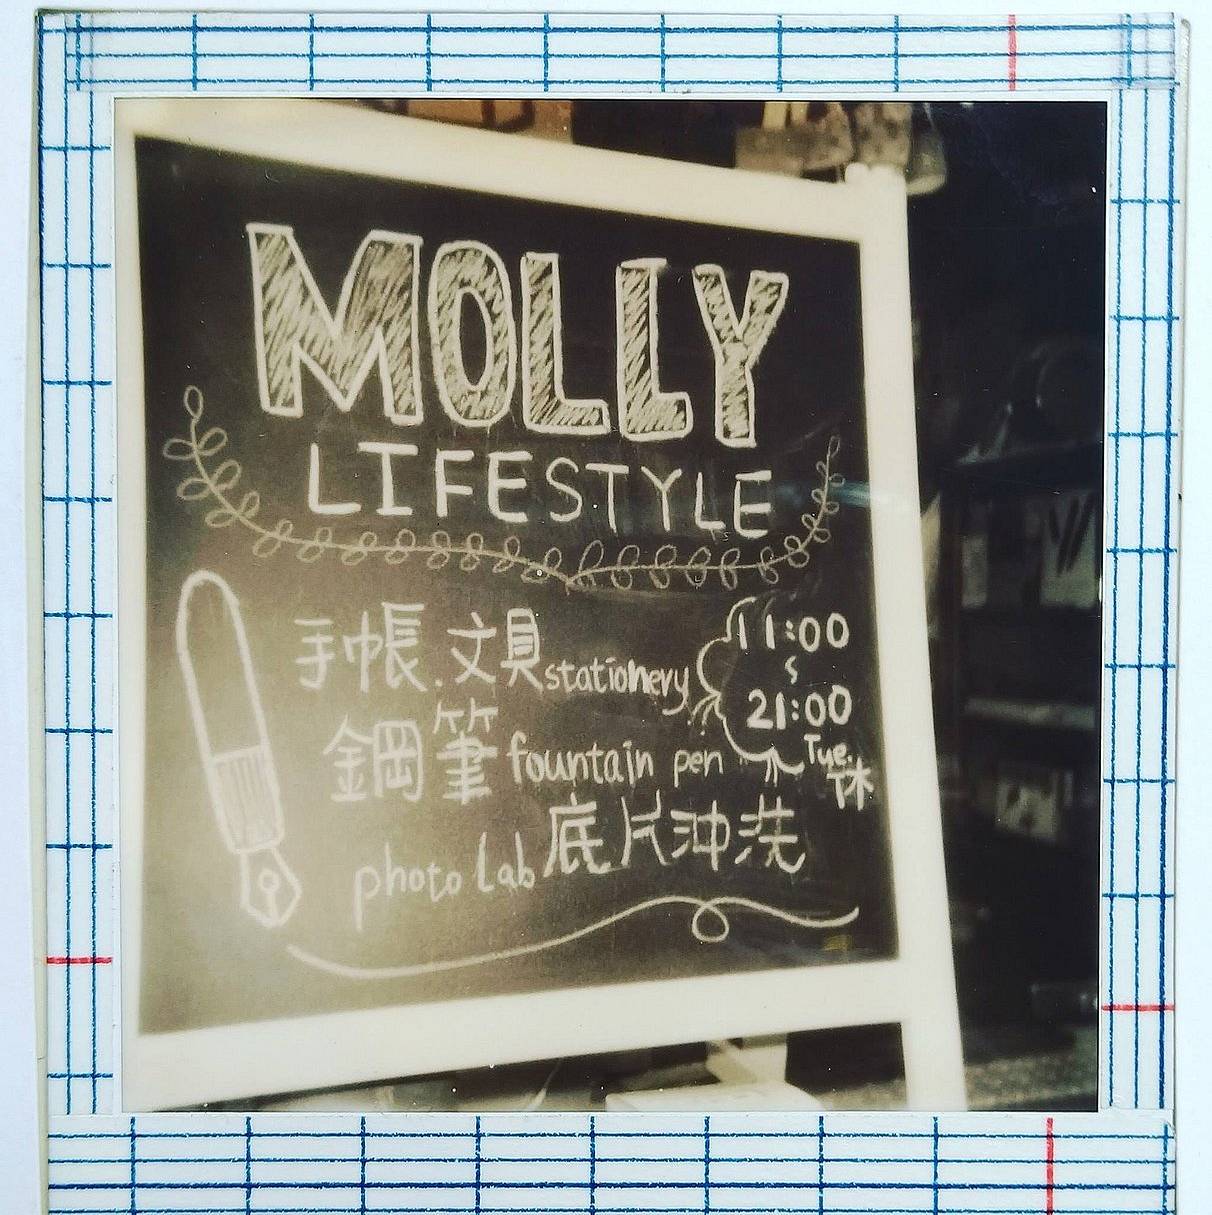 MOLLY
LIFESTYLE
手帳.文具 stationery
鋼筆 fountain pen
photo lab 底片沖洗
11:00
~
21:00
Tue.
休